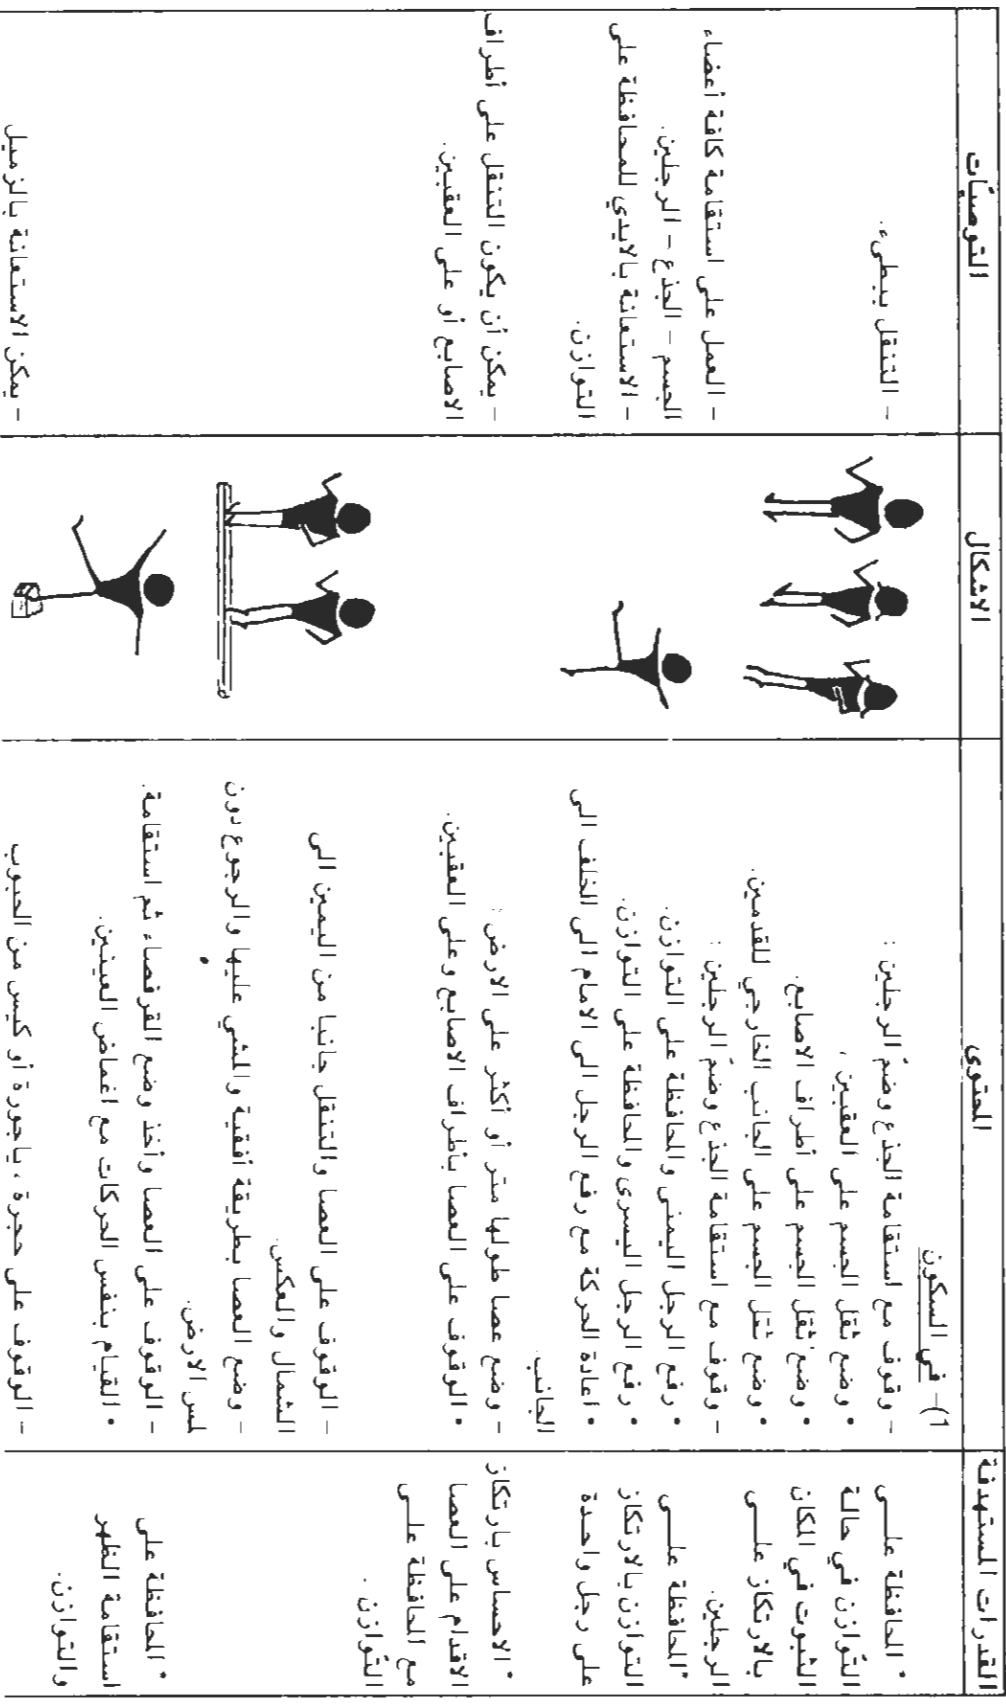 القدرات المستهدفة
المحتوى
الاشكال
التوصيّات
* المحافظة على
التّوازن في حالة
الثبوت في المكان
بالارتكاز على
الرجلين.
* المحافظة على
التوازن بالارتكاز
على رجل واحدة
* الاحساس بارتكاز
الاقدام على العصا
مع المحافظة على
التّوازن .
* المحافظة على
استقامة الظهر
والتوازن.
1)- في السكون
- وقوف مع استقامة الجذع وضمّ الرجلين :
• وضع ثقل الجسم على العقبين ،
• وضع ثقل الجسم على أطراف الاصابع.
• وضع ثقل الجسم على الجانب الخارجي للقدمين.
- وقوف مع استقامة الجذع وضمّ الرجلين :
• رفع الرجل اليمنى والمحافظة على التوازن.
• رفع الرجل اليسرى والمحافظة على التوازن.
• اعادة الحركة مع رفع الرجل الى الامام الى الخلف الى
الجانب.
- وضع عصا طولها متر أو أكثر على الارض :
• الوقوف على العصا بأطراف الاصابع وعلى العقبين.
- الوقوف على العصا والتنقل جانبا من اليمين الى
الشمال والعكس.
- وضع العصا بطريقة أفقية والمشي عليها والرجوع دون
لمس الارض.
- الوقوف على العصا وأخذ وضع القرفصاء ثم استقامة.
• القيام بنفس الحركات مع اغماض العينين.
- الوقوف على حجرة ، ياجورة أو كيس من الحبوب
- التنقل ببطىء.
- العمل على استقامة كافة أعضاء
الجسم - الجذع - الرجلين.
- الاستعانة بالايدي للمحافظة على
التوازن.
- يمكن أن يكون التنقل على أطراف
الاصابع أو على العقبين.
- يمكن الاستعانة بالزميل